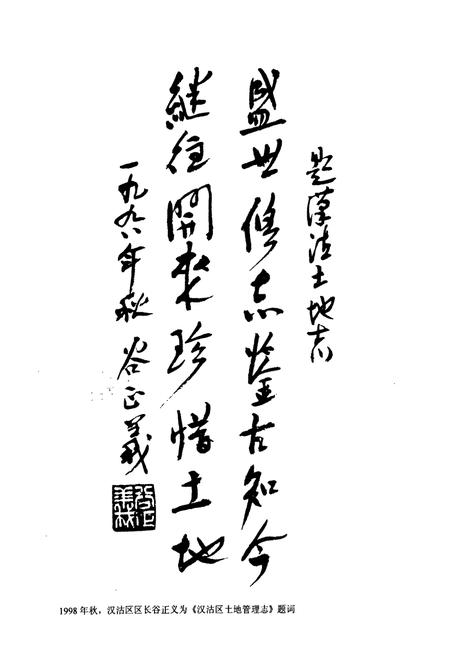 题汉沽土地志
盛世修志鉴古知今
继往開来珍惜土地
一九九八年秋 谷正義
1998年秋，汉沽区区长谷正义为《汉沽区土地管理志》题词